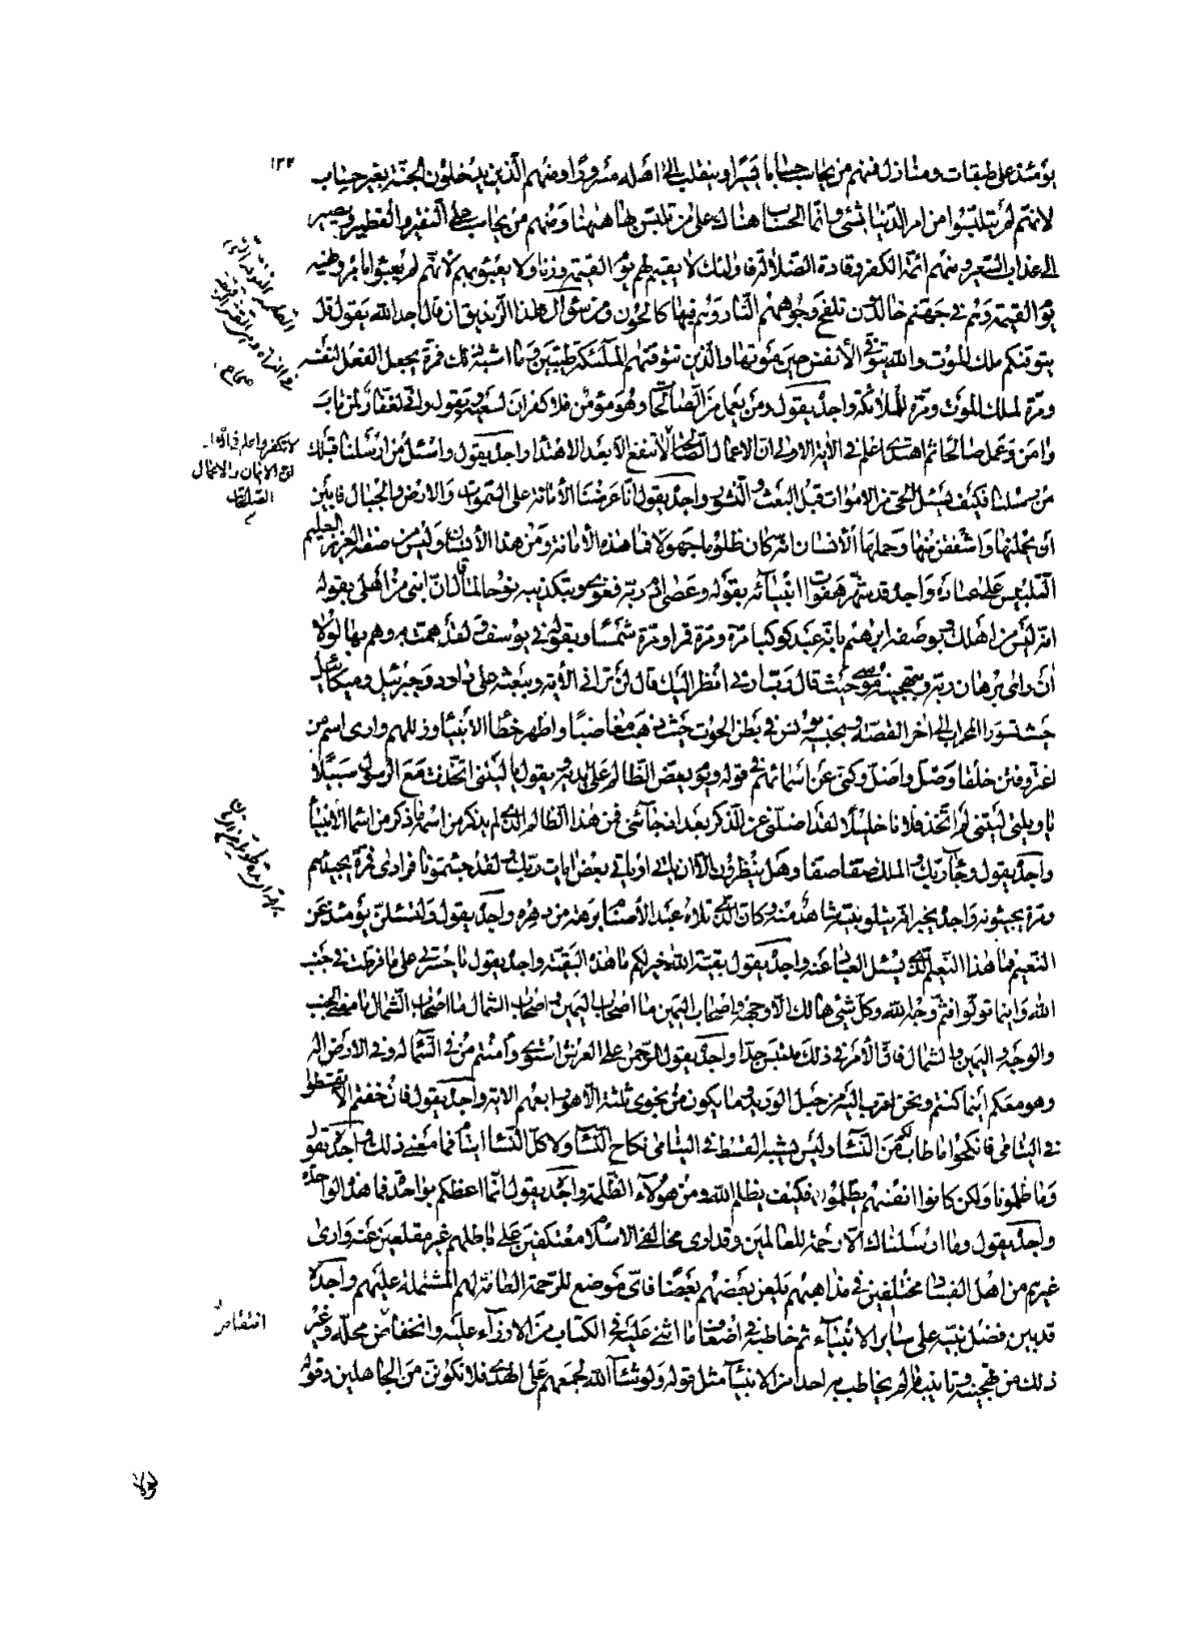 ١٢٢
يومئذ على طبقات ومنازل فمنهم من يحاسب حسابا يسيرا وينقلب الى اهله مسرورا ومنهم الذين يدخلون الجنة بغير حساب
لانهم لم يتلبسوا من امر الدنيا بشئ وانما الحساب هناك على من تلبس بها هيهنا ومنهم من يحاسب على النقير والقطمير ويصير
الى عذاب السعير ومنهم ائمة الكفر وقادة الضلالة فاولئك لا يقيم لهم يوم القيمة وزنا ولا يعبؤ بهم لانهم لم يعبئوا بامره ونهيه
يوم القيمة وهم في جهنم خالدون تلفح وجوههم النار وهم فيها كالحون ومن سؤال هذا الزنديق ان قال اجد الله يقول قل
يتوفيكم ملك الموت والله يتوفى الأنفس حين موتها والذين تتوفيهم الملئكة طيبين وما اشبه ذلك فمرة يجعل الفعل لنفسه
ومرة لملك الموت ومرة للملائكة واجده يقول ومن يعمل من الصالحات وهو مؤمن فلا كفران لسعيه ويقول واني لغفار لمن تاب
وامن وعمل صالحا ثم اهتدى اعلم في الاية الاولى ان الاعمال الصالحة لا تنفع الا بعد الاهتداء واجده يقول واسئل من ارسلنا قبلك
من رسلنا فكيف يسئل الحي من الاموات قبل البعث والنشور واجده يقول انا عرضنا الأمانة على السموات والارض والجبال فابين
ان يحملنها واشفقن منها وحملها الأنسان انه كان ظلوما جهولا فما هذه الأمانة ومن هذا الأنسان وليس من صفة العزيز العليم
التلبيس على عباده واجده قد شهر هفوات انبيائه بقوله وعصى ادم ربه فغوى وبتكذيبه نوحا لما قال ان ابنى من اهلى بقوله
انه ليس من اهلك وبوصفه ابرهيم بانه عبد كوكبا مرة ومرة قمرا ومرة شمسا وبقوله في يوسف ولقد همت به وهم بها لولا
ان راى برهان ربه وبتهجينه موسى حيث قال رب ارنى انظر اليك قال لن ترانى الاية وببعثه على داود جبرئيل وميكائيل
حيث تسوروا المحراب الى اخر القصة وبحبسه يونس في بطن الحوت حيث ذهب مغاضبا واظهر خطأ الأنبياء وزللهم وارى اسم من
اغتر وفتن خلقا وضل واضل وكنى عن اسمائهم في قوله ويوم يعض الظالم على يديه يقول يا ليتنى اتخذت مع الرسول سبيلا
يا ويلتى ليتنى لم اتخذ فلانا خليلا لقد اضلنى عن الذكر بعد اذ جائنى فمن هذا الظالم الذى لم يذكر من اسمه ما ذكر من اسماء الانبياء
واجده يقول وجاء ربك والملك صفا صفا وهل ينظرون الا ان ياتى او ياتى بعض ايات ربك ولقد جئتمونا فرادى فمرة يجيئهم
ومرة يجيئونه واجده يخبر انه يتلو نبيه شاهد منه وكان الذى تلاه عبد الأصنام برهة من دهره واجده يقول ولتسئلن يومئذ عن
النعيم فما هذا النعيم الذى يسئل العباد عنه واجده يقول بقية الله خير لكم ما هذه البقية واجده يقول يا حسرتى على ما فرطت في جنب
الله وايمنا تولوا فثم وجه الله وكل شئ هالك الا وجهه واصحاب اليمين ما اصحاب اليمين واصحاب الشمال ما اصحاب الشمال ما معنى الجنب
والوجه واليمين والشمال فان الأمر في ذلك ملتبس جدا واجده يقول الرحمن على العرش استوى وأمنتم من في السماء له وفى الارض اله
وهو معكم اينما كنتم ونحن اقرب اليه من حبل الوريد وما يكون من نجوى ثلثة الا هو رابعهم الاية واجده يقول فان خفتم الا تقسطوا
في اليتامى فانكحوا ما طاب لكم من النساء وليس يشبه القسط في اليتامى نكاح النساء ولا كل النساء ايتاما فما معنى ذلك واجده يقول
وما ظلمونا ولكن كانوا انفسهم يظلمون فكيف يظلم الله ومن هؤلاء الظلمة واجده يقول انما اعظكم بواحدة فما هذه الواحدة
واجده يقول وما ارسلناك الا رحمة للعالمين وقد ارى مخالفى الاسلام معتكفين على باطلهم غير مقلعين عنه وارى
غيرهم من اهل الفساد مختلفين في مذاهبهم يلعن بعضهم بعضا فاى موضع للرحمة العامة لهم المشتملة عليهم واجده
قد بين فضل نبيه على سائر الانبياء ثم خاطبه في اضعاف ما اثنى عليه في الكتاب من الازراء عليه وانخفاض محله وغير
ذلك من تهجينه وتانيبه ما لم يخاطب به احدا من الانبياء مثل قوله ولو شاء الله لجمعهم على الهدى فلا تكونن من الجاهلين وقوله
لا تكفر واعلم
الايمان والاعمال
انتقاص
لولا